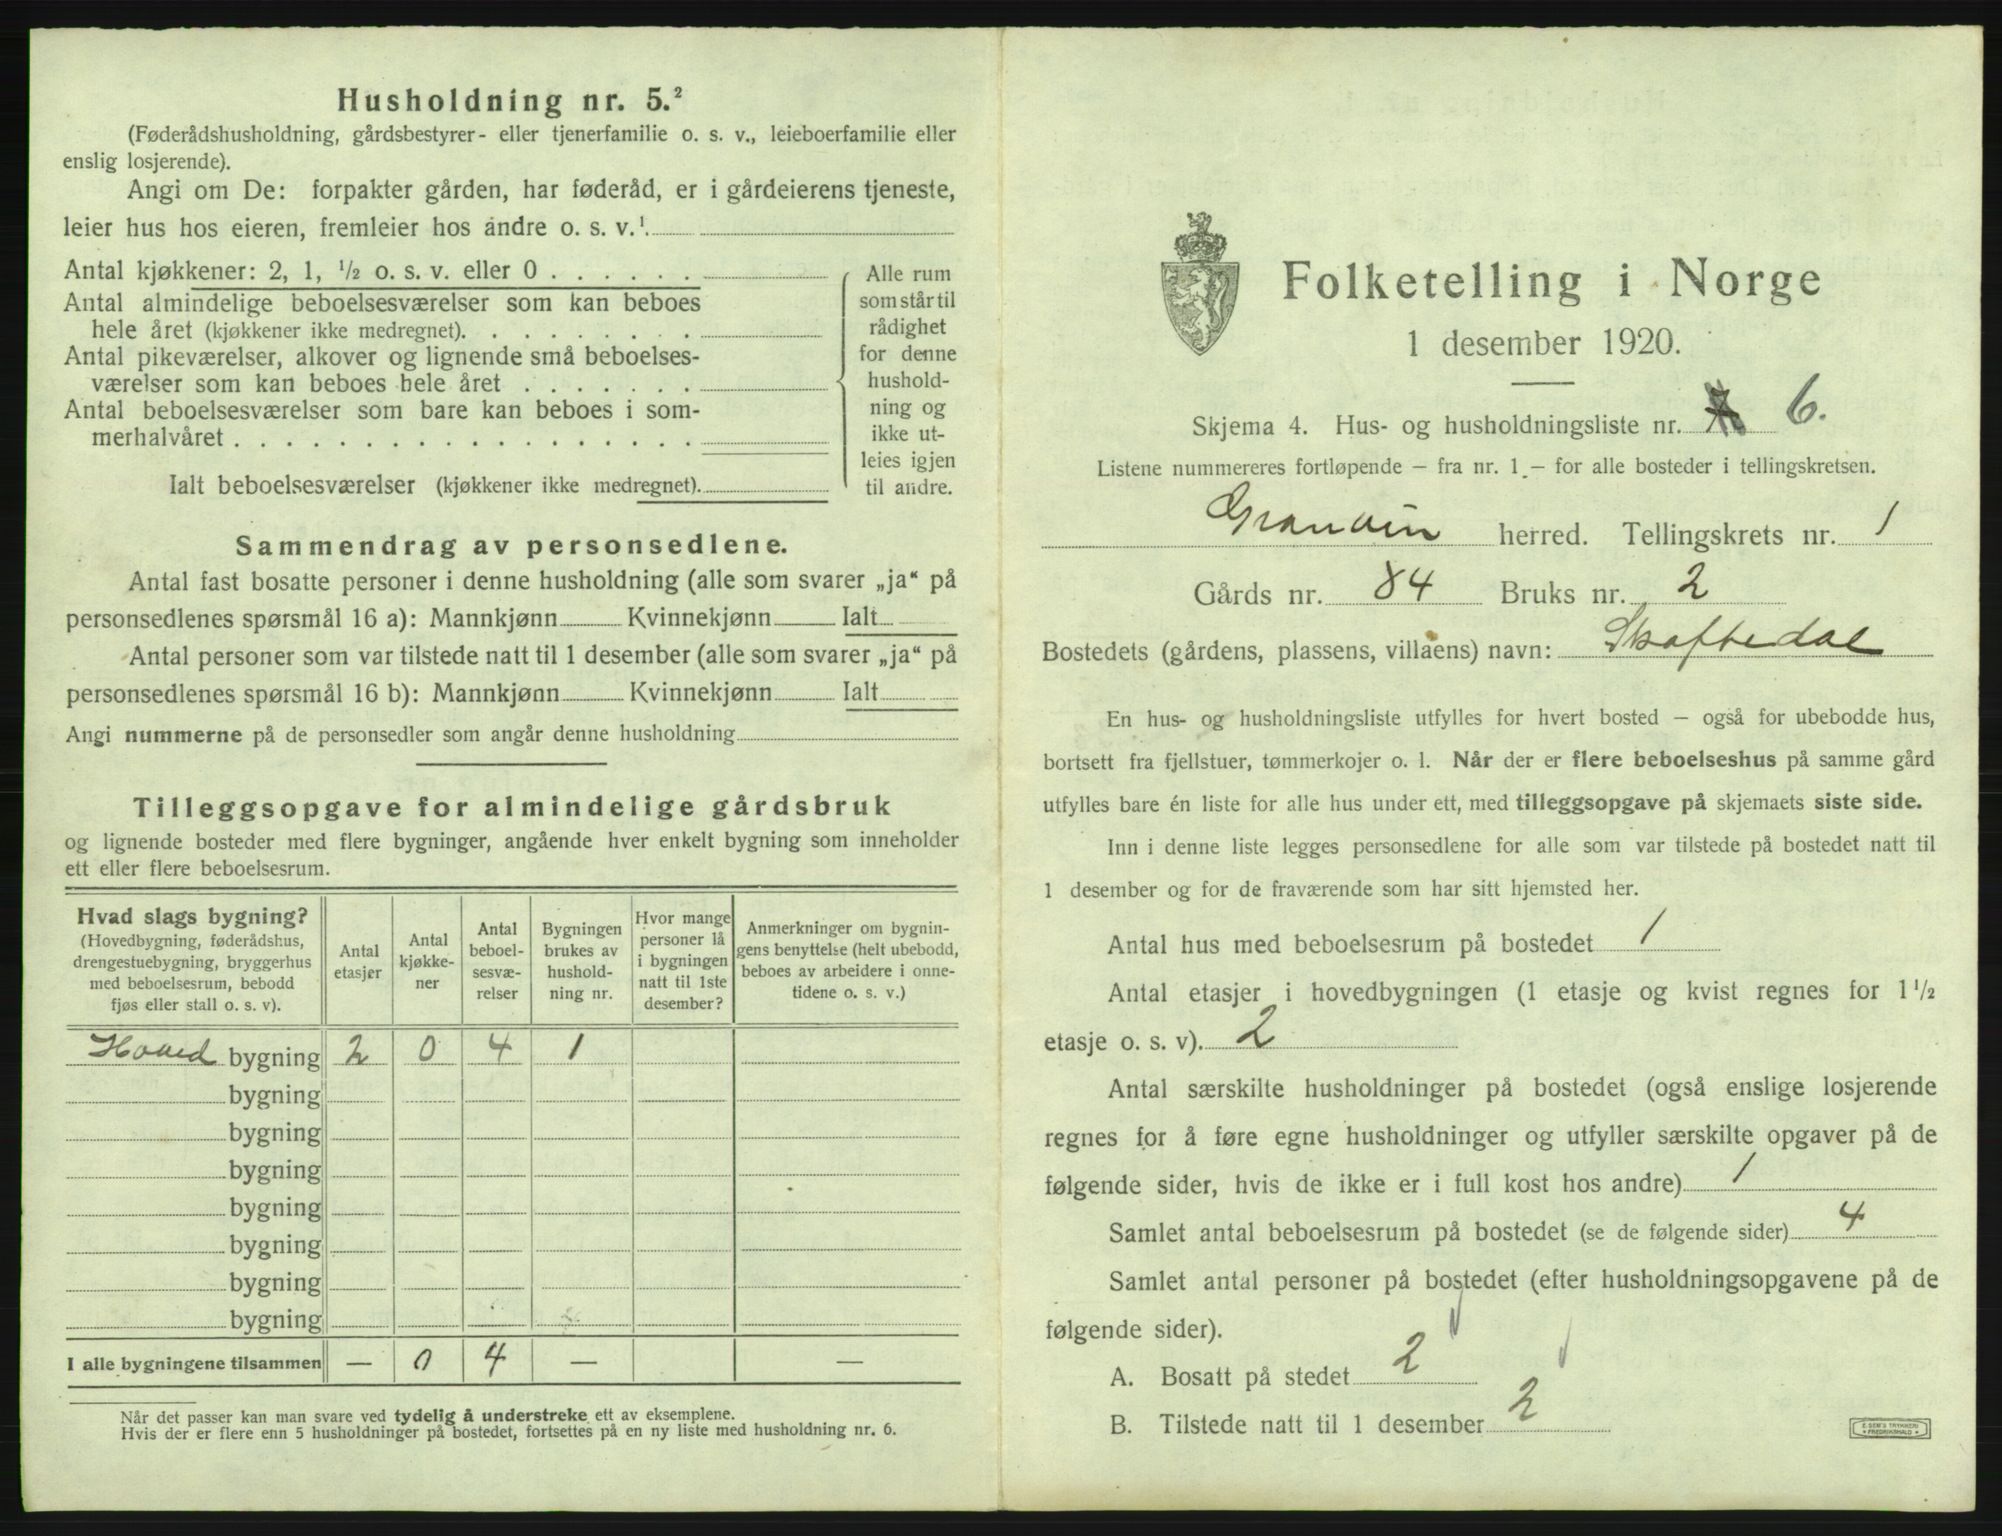 Husholdning nr. 5.²
(Føderådshusholdning, gårdsbestyrer- eller tjenerfamilie o. s. v., leieboerfamilie eller
enslig losjerende).
Angi om De: forpakter gården, har føderåd, er i gårdeierens tjeneste,
leier hus hos eieren, fremleier hos andre o. s. v.¹.
Antal kjøkkener: 2, 1, ½ o. s. v. eller 0 . . . . . .
Antal almindelige beboelsesværelser som kan beboes
hele året (kjøkkener ikke medregnet). . . . . . . . .
Antal pikeværelser, alkover og lignende små beboelses-
værelser som kan beboes hele året . . . . . . .
Antal beboelsesværelser som bare kan beboes i som-
merhalvåret . . . . . . . . . . . . . . . . . .
Ialt beboelsesværelser (kjøkkener ikke medregnet).
Alle rum
som står til
rådighet
for denne
hushold-
ning og
ikke ut-
leies igjen
til andre.
Sammendrag av personsedlene.
Antal fast bosatte personer i denne husholdning (alle som svarer „ja“ på
personsedlenes spørsmål 16 a): Mannkjønn Kvinnekjønn Ialt
Antal personer som var tilstede natt til 1 desember (alle som svarer „ja“ på
personsedlenes spørsmål 16 b): Mannkjønn Kvinnekjønn Ialt
Angi nummerne på de personsedler som angår denne husholdning
Tilleggsopgave for almindelige gårdsbruk
og lignende bosteder med flere bygninger, angående hver enkelt bygning som inneholder
ett eller flere beboelsesrum.
Hvad slags bygning?
(Hovedbygning, føderådshus,
drengestuebygning, bryggerhus
med beboelsesrum, bebodd
fjøs eller stall o. s. v).
Antal
etasjer
Antal
kjøkke-
ner
Antal
beboel-
sesvæ-
relser
Bygningen
brukes av
hushold-
ning nr.
Hvor mange
personer lå
i bygningen
natt til 1ste
desember?
Anmerkninger om bygnin-
gens benyttelse (helt ubebodd,
beboes av arbeidere i onne-
tidene o. s. v.)
Hoved bygning 2 0 4 1
bygning
bygning
bygning
bygning
bygning
bygning
bygning
I alle bygningene tilsammen — 0 4 — —
Når det passer kan man svare ved tydelig å understreke ett av eksemplene.
Hvis der er flere enn 5 husholdninger på bostedet, fortsettes på en ny liste med husholdning nr. 6.
Folketelling i Norge
1 desember 1920.
Skjema 4. Hus- og husholdningsliste nr. 6.
Listene nummereres fortløpende – fra nr. 1 – for alle bosteder i tellingskretsen.
Granvin herred. Tellingskrets nr. 1
Gårds nr. 84 Bruks nr. 2
Bostedets (gårdens, plassens, villaens) navn: Skaftedal
En hus- og husholdningsliste utfylles for hvert bosted – også for ubebodde hus,
bortsett fra fjellstuer, tømmerkojer o. l. Når der er flere beboelseshus på samme gård
utfylles bare én liste for alle hus under ett, med tilleggsopgave på skjemaets siste side.
Inn i denne liste legges personsedlene for alle som var tilstede på bostedet natt til
1 desember og for de fraværende som har sitt hjemsted her.
Antal hus med beboelsesrum på bostedet 1
Antal etasjer i hovedbygningen (1 etasje og kvist regnes for 1½
etasje o. s. v). 2
Antal særskilte husholdninger på bostedet (også enslige losjerende
regnes for å føre egne husholdninger og utfyller særskilte opgaver på de
følgende sider, hvis de ikke er i full kost hos andre) 1
Samlet antal beboelsesrum på bostedet (se de følgende sider) 4
Samlet antal personer på bostedet (efter husholdningsopgavene på de
følgende sider).
A. Bosatt på stedet 2
B. Tilstede natt til 1 desember 2
E. SEM'S TRYKKERI
• FREDRIKSHALD •